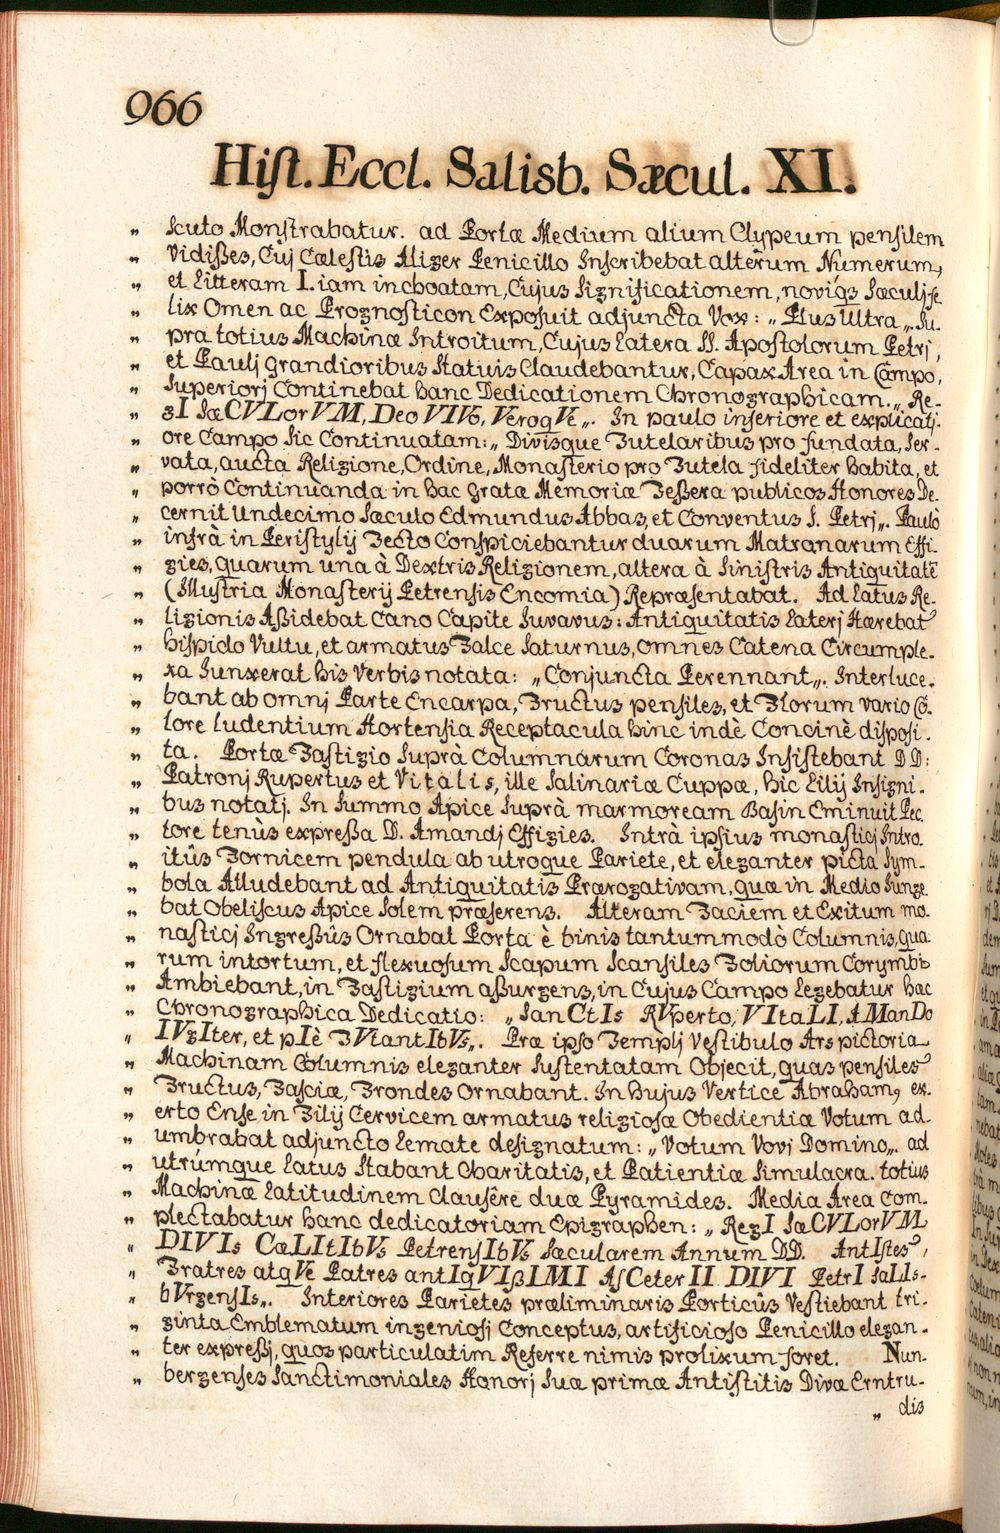 966
Hiſt. Eccl. Salisb. Sæcul. XI.
„ Scuto Monſtrabatur. ad Portæ Medium alium Clypeum penſilem
„ Vidißes, Cuj Cæleſtis Aliger Penicillo Inſcribebat alterum Numerum,
„ et Litteram I. iam inchoatam, Cujus Significationem, novi₉ Sæculj fe
„ lix Omen ac Prognoſticon Expoſuit adjuncta Vox: „ Plus Ultra „. Su.
„ pra totius Machinæ Introitum, Cujus Latera SS. Apoſtolorum Petrj,
„ et Paulj grandioribus Statuis Claudebantur, Capax Area in Campo,
„ Superiorj Continebat hanc Dedicationem Chronographicam. „ Re-
„ gI SæCVLorVM, Deo VIVo, VeroqVe „. In paulo inferiore et explicatj-
„ ore Campo Sic Continuatam: „ Divisque Tutelaribus pro fundata, Ser-
„ vata, aucta Religione, Ordine, Monaſterio pro Tutela fideliter habita, et
„ porrò Continuanda in hac gratæ Memoriæ Teßera publicos Honores De-
„ cernit Undecimo Sæculo Edmundus Abbas, et Conventus S. Petrj „. Paulò
„ infrà in Periſtylij Tecto Conſpiciebantur duarum Matranarum Effi-
„ gies, quarum una à Dextris Religionem, altera à Siniſtris Antiquitatē
„ (Illuſtria Monaſterij Petrenſis Encomia) Repræſentabat. Ad Latus Re-
„ ligionis Aßidebat Cano Capite Juvavus: Antiquitatis Laterj Hærebat
„ hiſpido Vultu, et armatus Falce Saturnus, omnes Catena Circumple-
„ xa Junxerat his Verbis notata: „ Conjuncta Perennant „. Interluce-
„ bant ab omnj Parte Encarpa, Fructus penſiles, et Florum vario Co-
„ lore ludentium Hortenſia Receptacula hinc indè Concinè diſpoſi-
„ ta. Portæ Faſtigio Suprà Columnarum Coronas Inſiſtebant DD:
„ Patronj Rupertus et Vitalis, ille Salinariæ Cuppæ, hic Lilij Inſigni-
„ bus notatj. In Summo Apice Suprà marmoream Baſin Eminuit Pec
„ tore tenùs expreßa D. Amandj Effigies. Intrà ipſius monaſticj Intro
„ itûs Fornicem pendula ab utroque Pariete, et eleganter picta Sym-
„ bola Alludebant ad Antiquitatis Prærogativam, quæ in Medio Junge
„ bat Obeliſcus Apice Solem præferens. Alteram Faciem et Exitum mo-
„ naſticj Ingreßûs Ornabat Porta è binis tantummodò Columnis, qua
„ rum intortum, et flexuoſum Scapum Scanſiles Foliorum Corymbi
„ Ambiebant, in Faſtigium aßurgens, in Cujus Campo Legebatur hac
„ Chronographica Dedicatio: „ SanCtIs RVperto, VItaLI, AManDo
„ IVgIter, et pIè FVtantIbVs „. Præ ipſo Templj Veſtibulo Ars pictoria
„ Machinam Columnis eleganter Suſtentatam Objecit, quas penſiles
„ Fructus, Faſciæ, Frondes Ornabant. In hujus Vertice Abraham, ex-
„ erto Enſe in Filij Cervicem armatus religioſæ Obedientiæ Votum ad-
„ umbrabat adjuncto Lemate deſignatum: „ Votum Vovj Domino „. ad
„ utrúmque Latus Stabant Charitatis, et Patientiæ Simulacra. totius
„ Machinæ Latitudinem Clauſêre duæ Pyramides. Media Area Com-
„ plectabatur hanc dedicatoriam Epigraphen: „ RegI SæCVLorVM
„ DIVIs CæLItIbVs PetrenſIbVs Sæcularem Annum DD. AntIſtes,
„ Fratres atqVe Patres antIqVIßIMI AſCeterII DIVI PetrI SaLIs-
„ bVrgenſIs „. Interiores Parietes præliminaris Porticûs Veſtiebant tri-
„ ginta Emblematum ingenioſj Conceptus, artificioſo Penicillo elegan-
„ ter expreßj, quos particulatim Referre nimis prolixum foret. Nun-
„ bergenſes Sanctimoniales Honorj Suæ primæ Antiſtitis Divæ Erntru-
„ dis